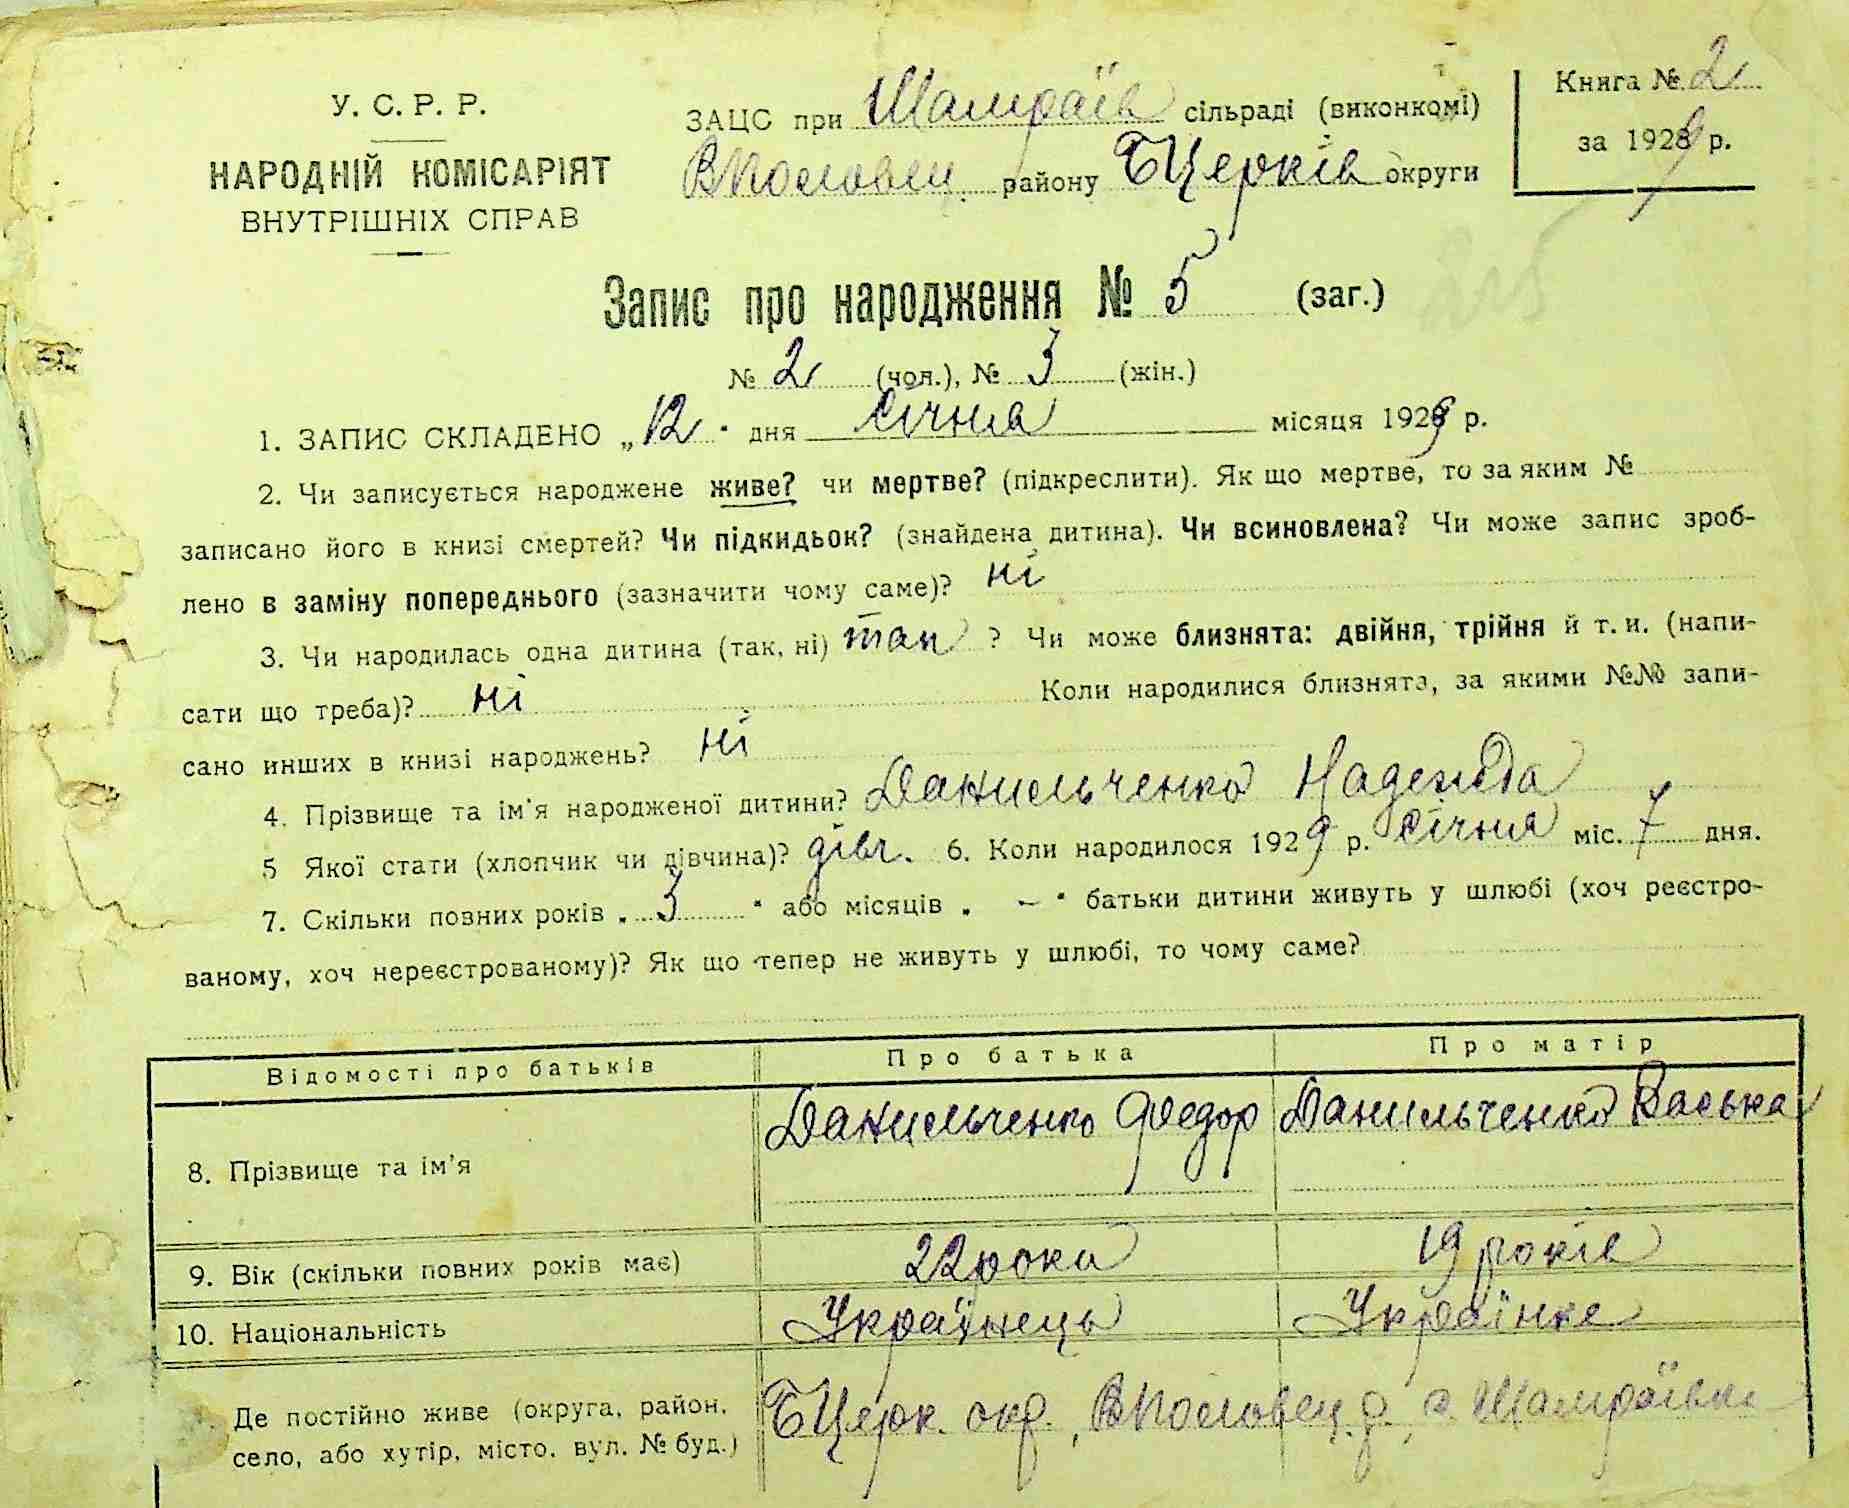 У. С. Р. Р.
НАРОДНІЙ КОМІСАРІЯТ
ВНУТРІШНІХ СПРАВ
ЗАЦС при Шамраїв сільраді (виконкомі)
ВПоловец. району БЦерків округи
Книга № 2
за 1929 р.
Запис про народження № 5 (заг.)
№ 2 (чол.), № 3 (жін.)
1. ЗАПИС СКЛАДЕНО „12" дня Січня місяця 1929 р.
2. Чи записується народжене живе? чи мертве? (підкреслити). Як що мертве, то за яким №
записано його в книзі смертей? Чи підкидьок? (знайдена дитина). Чи всиновлена? Чи може запис зроб-
лено в заміну попереднього (зазначити чому саме)? ні
3. Чи народилась одна дитина (так, ні) так ? Чи може близнята: двійня, трійня й т. и. (напи-
сати що треба)? ні Коли народилися близнята, за якими №№ запи-
сано инших в книзі народжень? ні
4. Прізвище та ім'я народженої дитини? Данильченко Надежда
5 Якої стати (хлопчик чи дівчина)? дівч. 6. Коли народилося 1929 р. Січня міс. 7 дня.
7. Скільки повних років „ 3 " або місяців „ – " батьки дитини живуть у шлюбі (хоч реєстро-
ваному, хоч нереєстрованому)? Як що тепер не живуть у шлюбі, то чому саме?
Відомості про батьків Про батька Про матір
8. Прізвище та ім'я Данильченко Федор Данильченко Васька
9. Вік (скільки повних років має) 22 роки 19 років
10. Національність Українець Українке
Де постійно живе (округа, район,
село, або хутір, місто, вул. № буд.) БЦерк. окр., ВПоловец. р. с. Шамраївка